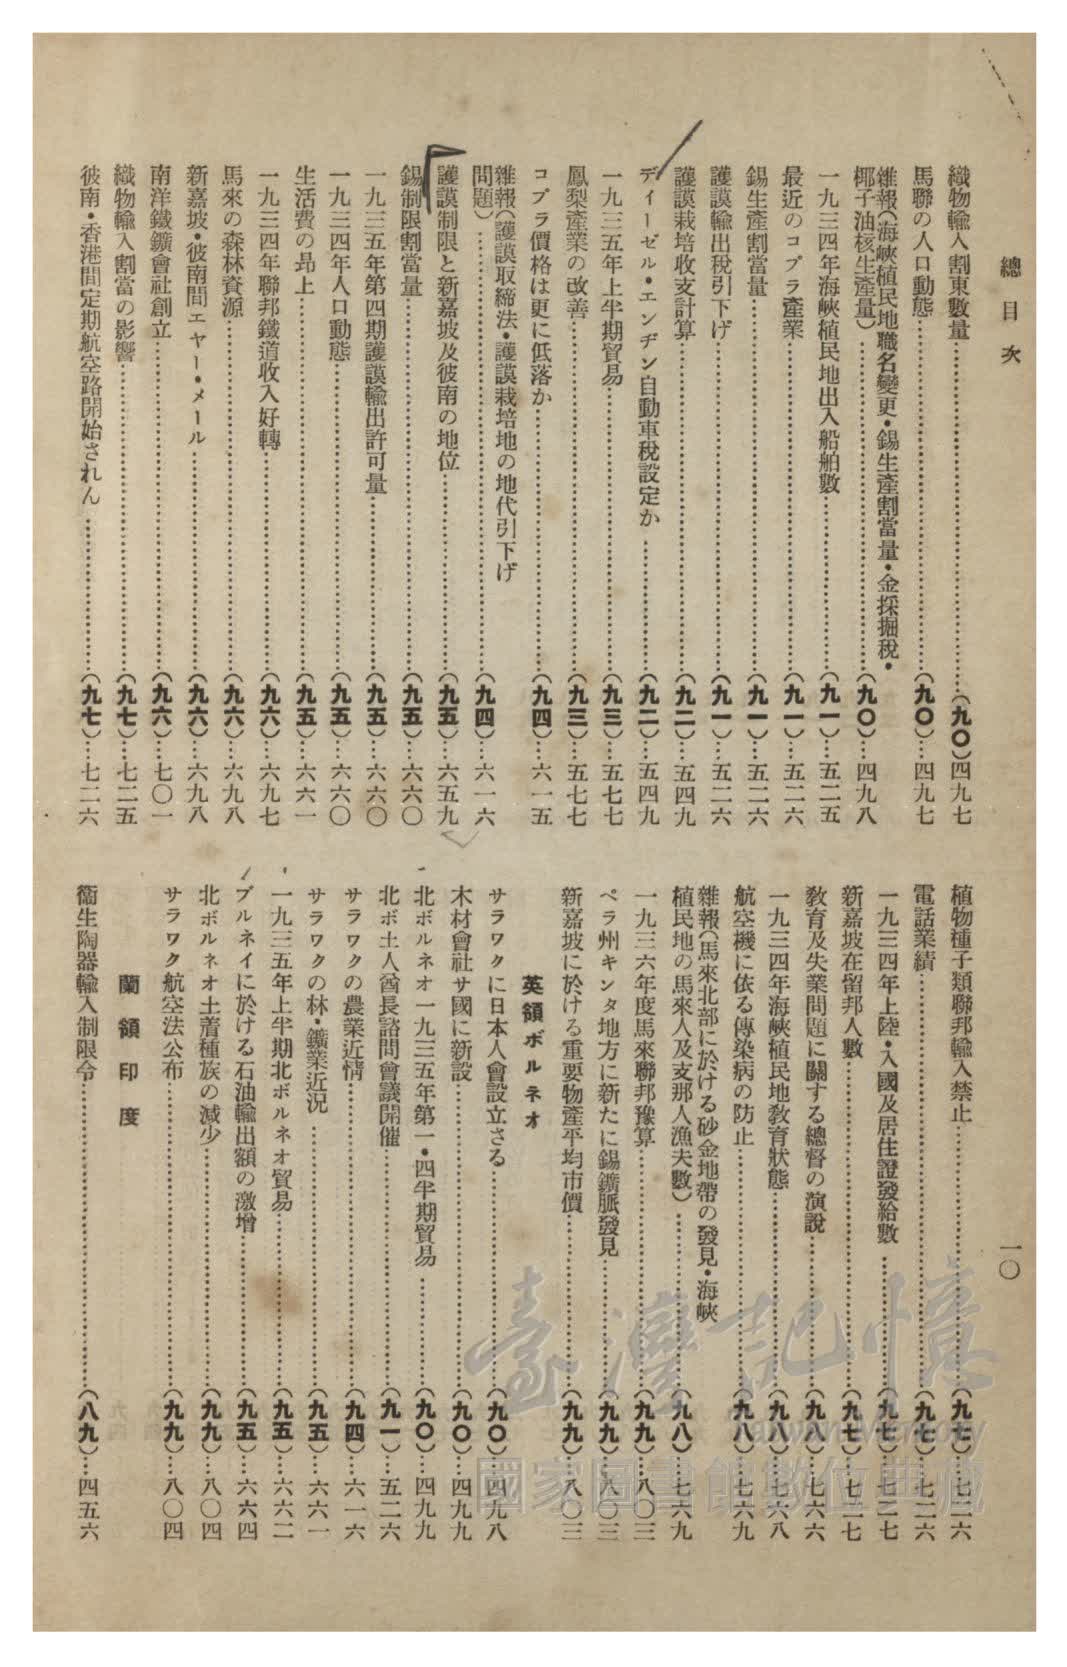 總目次
一〇
織物輸入割東數量……(九〇)四九七
馬聯の人口動態……(九〇)…四九七
雜報(海峽植民地職名變更・錫生產割當量・金採掘稅・
椰子油核生產量)……(九〇)…四九八
一九三四年海峽植民地出入船舶數……(九一)…五二五
最近のコプラ產業……(九一)…五二六
錫生產割當量……(九一)…五二六
護謨輸出稅引下げ……(九一)…五二六
護謨栽培收支計算……(九二)…五四九
ディーゼル・エンヂン自動車稅設定か……(九二)…五四九
一九三五年上半期貿易……(九三)…五七七
鳳梨產業の改善……(九三)…五七七
コプラ價格は更に低落か……(九四)…六一五
雜報(護謨取締法・護謨栽培地の地代引下げ
問題)……(九四)…六一六
護謨制限と新嘉坡及彼南の地位……(九五)…六五九
錫制限割當量……(九五)…六六〇
一九三五年第四期護謨輸出許可量……(九五)…六六〇
一九三四年人口動態……(九五)…六六〇
生活費の昂上……(九五)…六六一
一九三四年聯邦鐵道收入好轉……(九六)…六九七
馬來の森林資源……(九六)…六九八
新嘉坡・彼南間エヤー・メール……(九六)…六九八
南洋鐵鑛會社創立……(九六)…七〇一
織物輸入割當の影響……(九七)…七二五
彼南・香港間定期航空路開始されん……(九七)…七二六
植物種子類聯邦輸入禁止……(九七)…七二六
電話業績……(九七)…七二六
一九三四年上陸・入國及居住證發給數……(九七)…七二七
新嘉坡在留邦人數……(九七)…七二七
敎育及失業問題に關する總督の演說……(九八)…七六六
一九三四年海峽植民地敎育狀態……(九八)…七六八
航空機に依る傳染病の防止……(九八)…七六九
雜報(馬來北部に於ける砂金地帶の發見・海峽
植民地の馬來人及支那人漁夫數)……(九八)…七六九
一九三六年度馬來聯邦豫算……(九九)…八〇三
ペラ州キンタ地方に新たに錫鑛脈發見……(九九)…八〇三
新嘉坡に於ける重要物產平均市價……(九九)…八〇三
英領ボルネオ
サラワクに日本人會設立さる……(九〇)…四九八
木材會社サ國に新設……(九〇)…四九九
北ボルネオ一九三五年第一・四半期貿易……(九〇)…四九九
北ボ土人酋長諮問會議開催……(九一)…五二六
サラワクの農業近情……(九四)…六一六
サラワクの林・鑛業近況……(九五)…六六一
一九三五年上半期北ボルネオ貿易……(九五)…六六二
ブルネイに於ける石油輸出額の激增……(九五)…六六四
北ボルネオ土著種族の減少……(九九)…八〇四
サラワク航空法公布……(九九)…八〇四
蘭領印度
衞生陶器輸入制限令……(八九)…四五六
臺灣記憶
Taiwan Memory
國家圖書館數位典藏